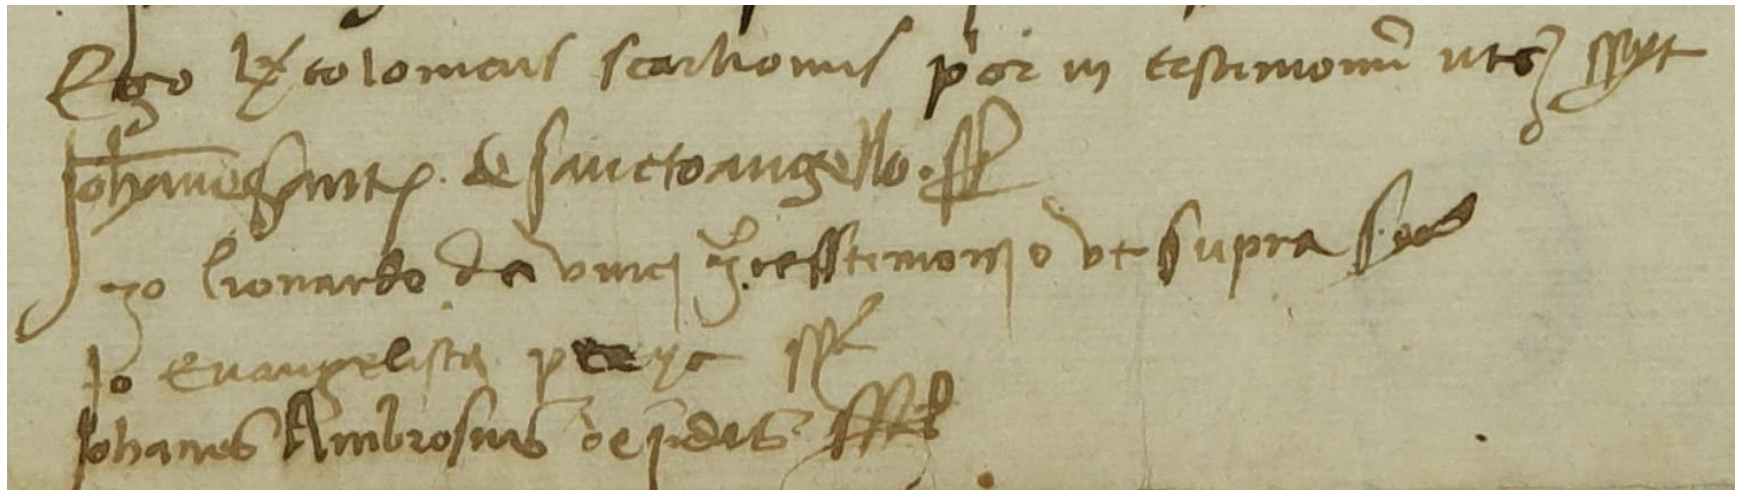 Ego bartolomeus scarlionus prior in testimoniu ut s sst
Johannes de sanctoangello. ss
io lionardo da vinci in testimonio ut supra sss
Io Evangelista p ss
Johanes Ambrosius de pdis sss